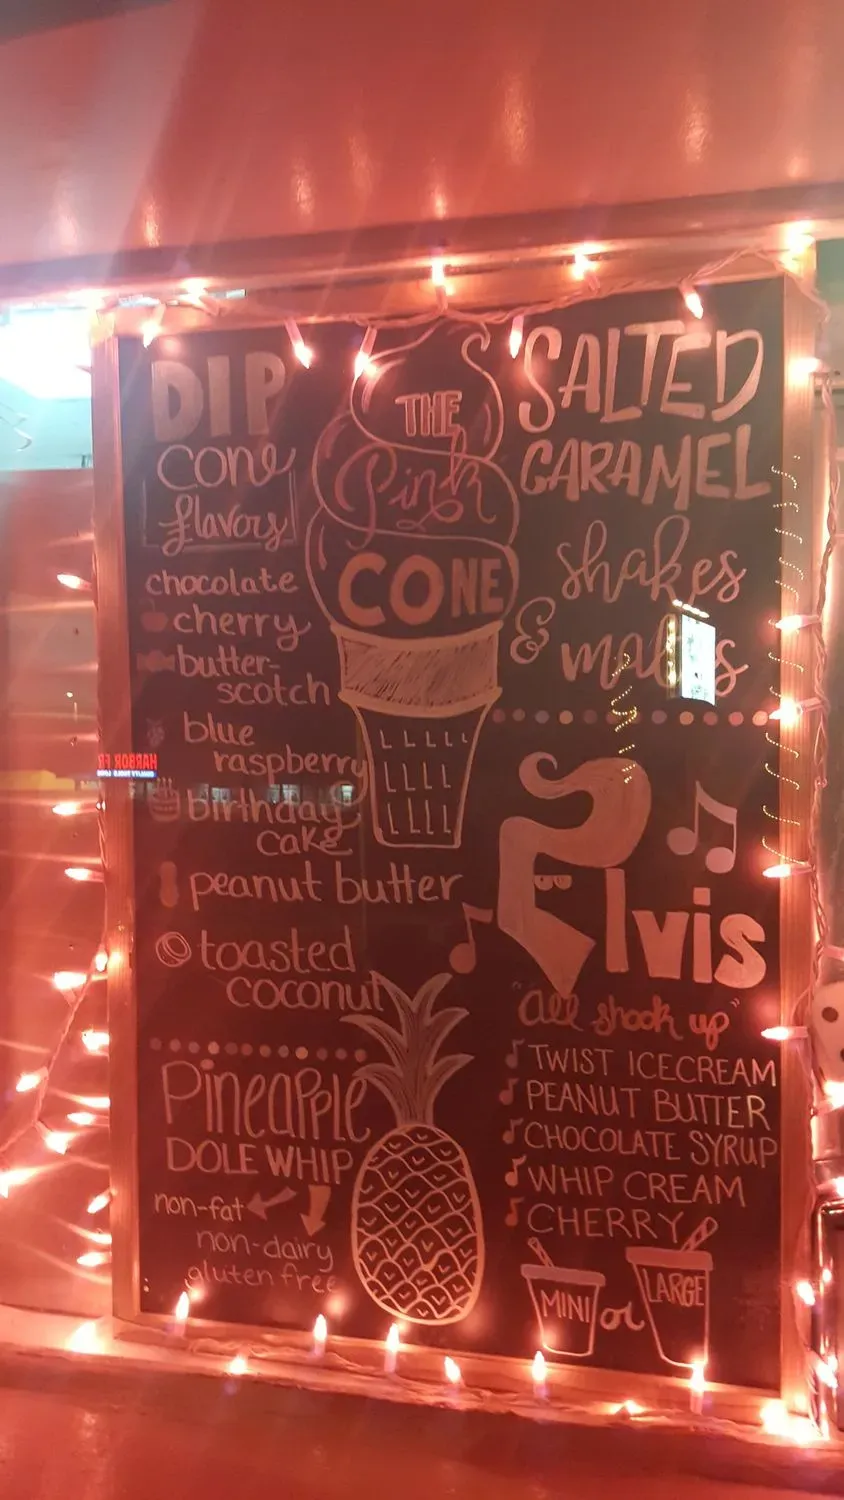 THE
Pink
CONE
DIP
cone
flavors
chocolate
cherry
butter-
scotch
blue
raspberry
birthday
cake
peanut butter
toasted
coconut
Pineapple
DOLE WHIP
non-fat
non-dairy
gluten free
SALTED
CARAMEL
shakes
& malts
Elvis
"all shook up"
TWIST ICECREAM
PEANUT BUTTER
CHOCOLATE SYRUP
WHIP CREAM
CHERRY
MINI or LARGE